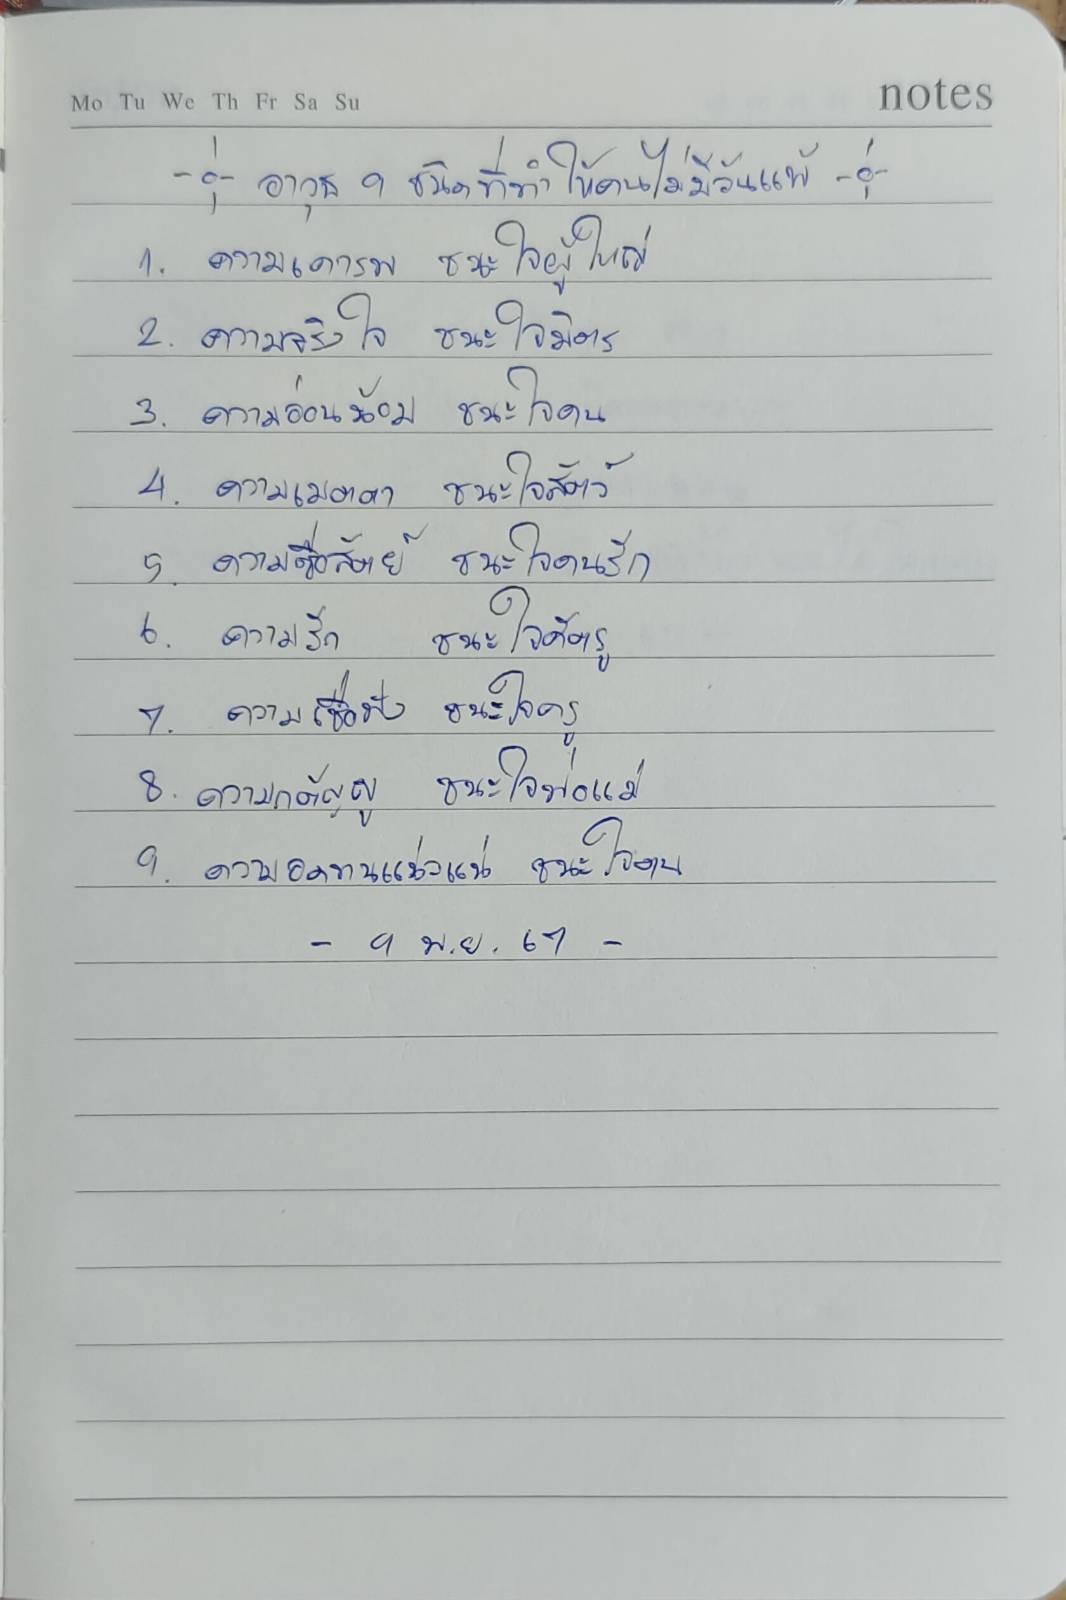 Mo Tu We Th Fr Sa Su notes
อาวุธ 9 ชนิดที่ทำให้คนไม่มีวันแพ้
1. ความเคารพ ชนะใจผู้ใหญ่
2. ความจริงใจ ชนะใจมิตร
3. ความอ่อนน้อม ชนะใจคน
4. ความเมตตา ชนะใจสัตว์
5. ความซื่อสัตย์ ชนะใจคนรัก
6. ความรัก ชนะใจศัตรู
7. ความเชื่อฟัง ชนะใจครู
8. ความกตัญญู ชนะใจพ่อแม่
9. ความอดทนแน่วแน่ ชนะใจตน
- 9 พ.ย. 67 -